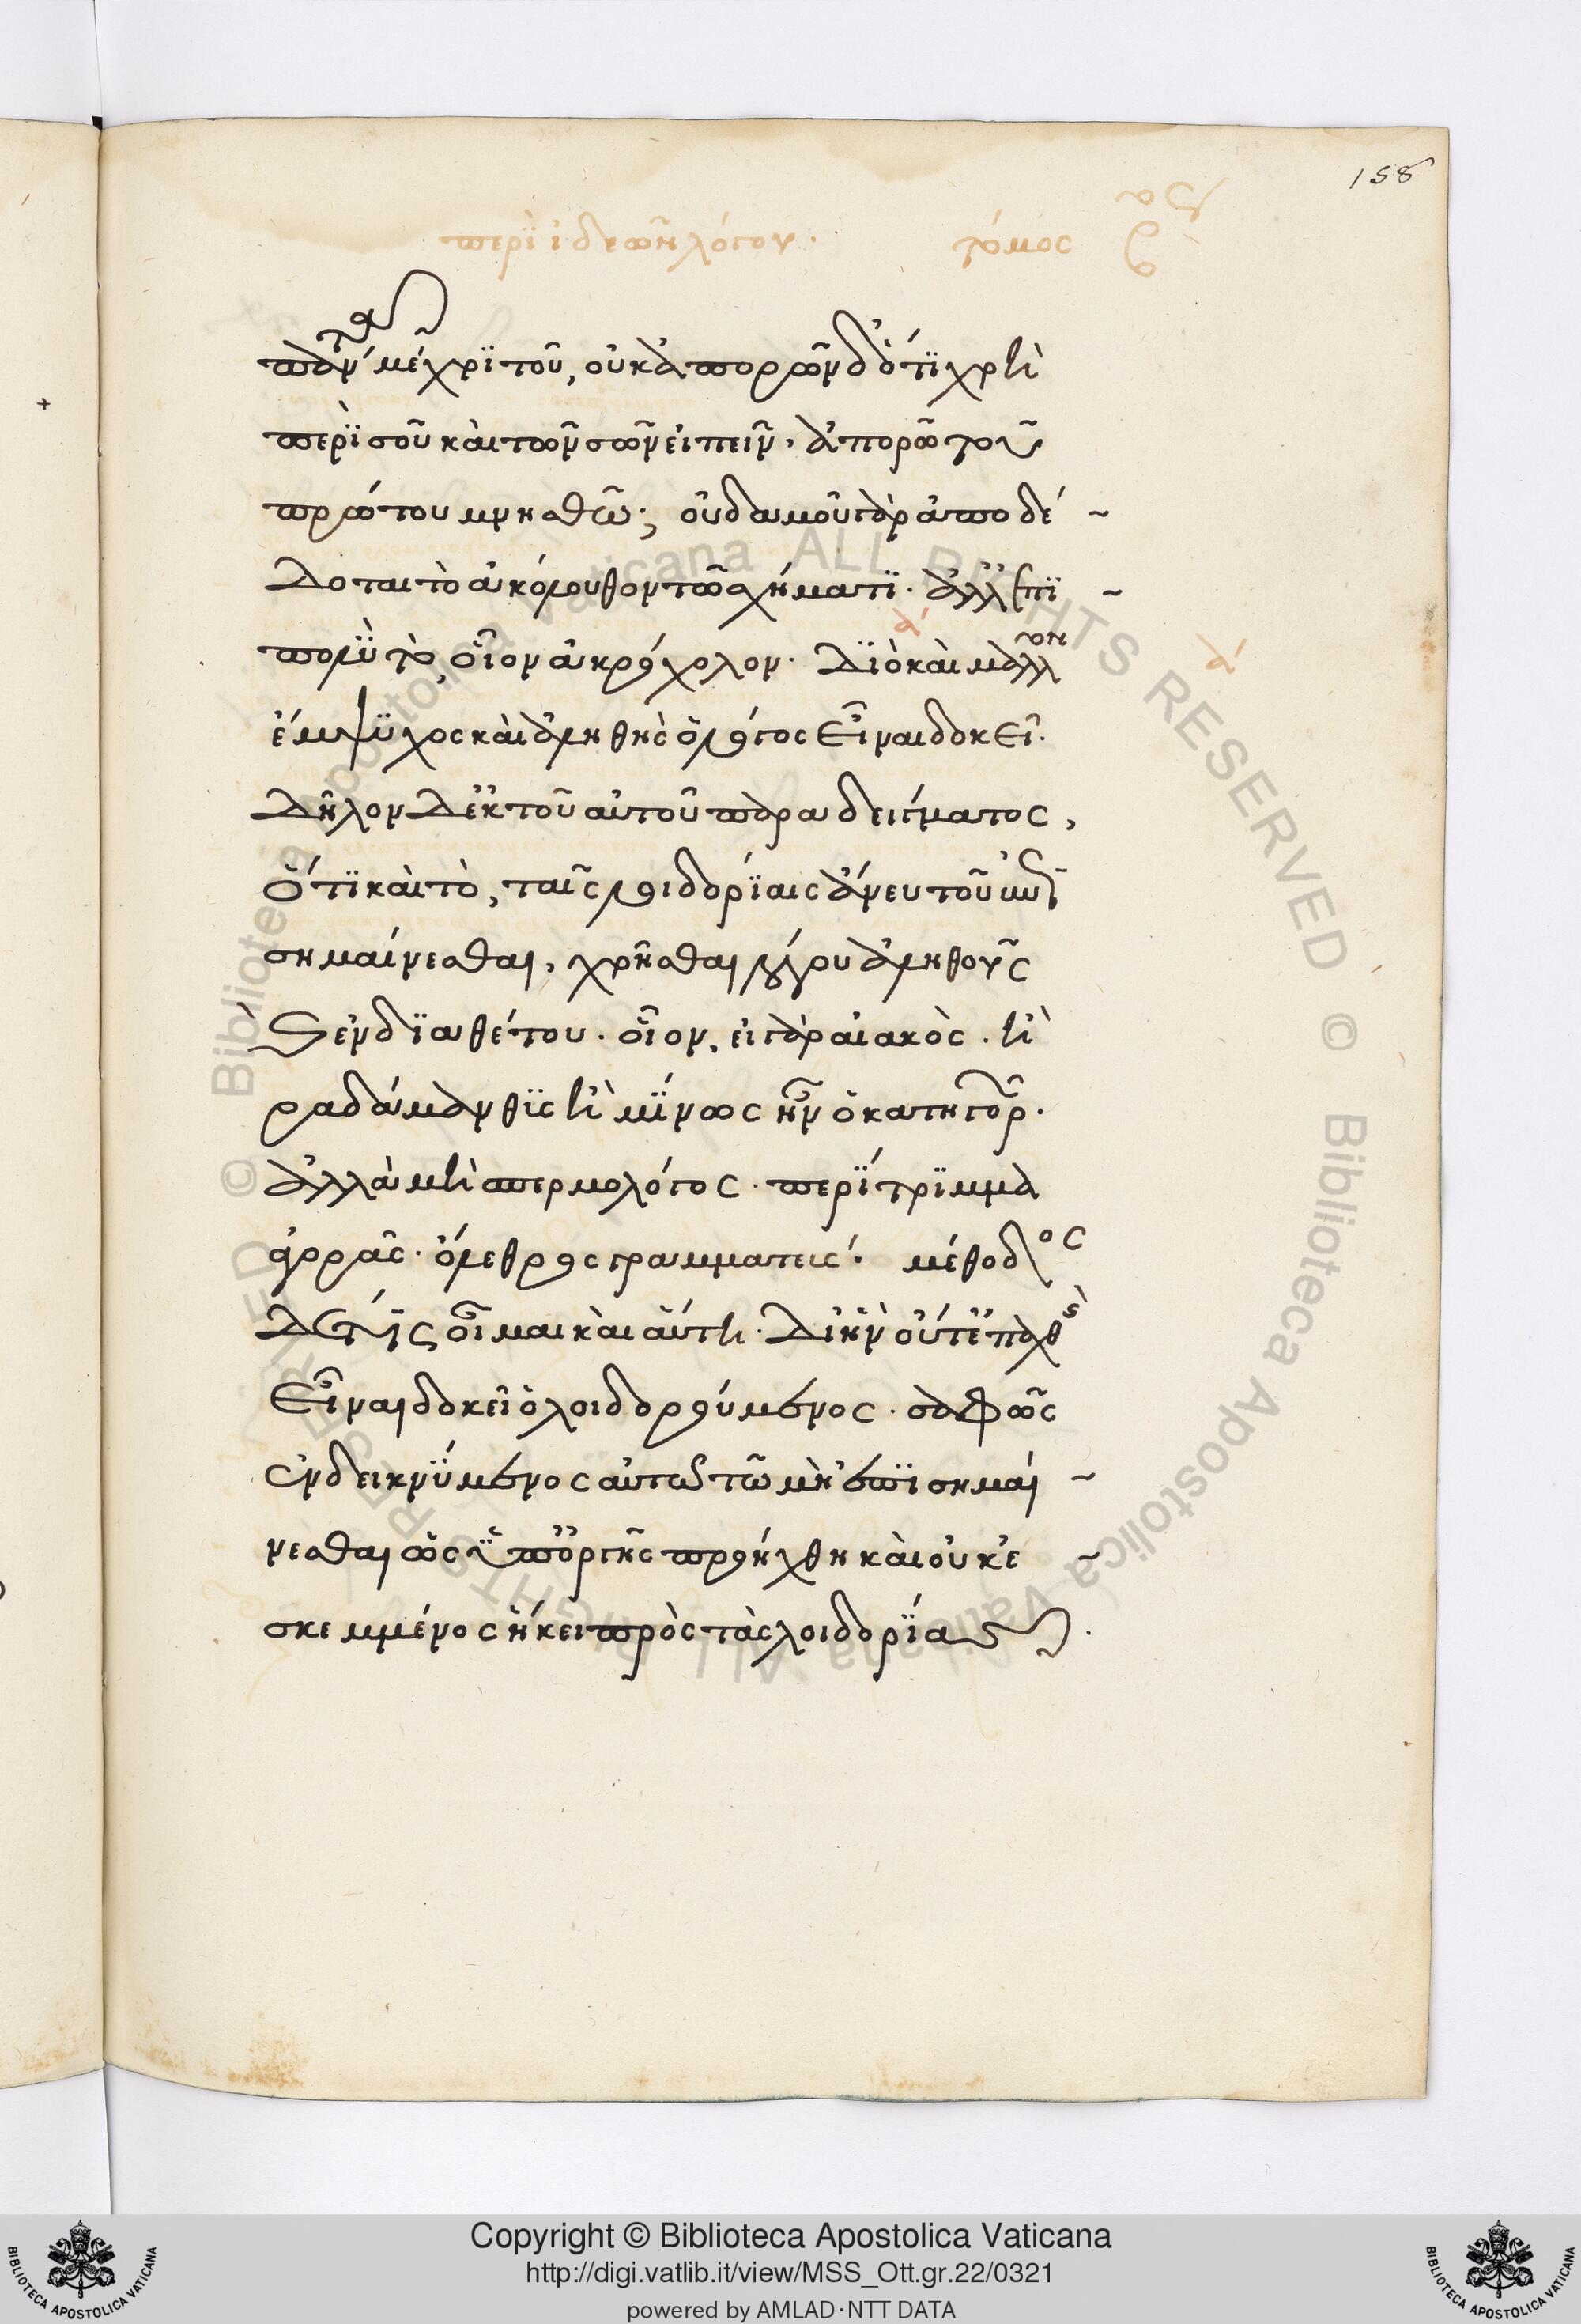 158
περὶ ἰδεῶν λόγου. τόμος β
πάντα μέχρι τοῦ, οὐκ ἀπορῶν δ' ὅ τι χρὴ
περὶ σοῦ καὶ τῶν σῶν εἰπεῖν, ἀπορῶ τοῦ
πρώτου μνησθῶ; οὐδαμοῦ γὰρ ἀποδέ
δοται τὸ ἀκόλουθον τῶ σχήματι. ἀλλ' ἐπι
πολὺ τὸ, οἷον ἀκρόχολον. διὸ καὶ μᾶλλον
ἔμψυχος καὶ ἀληθὴς ὁ λόγος εἶναι δοκεῖ.
δῆλον δ' ἐκ τοῦ αὐτοῦ παραδείγματος,
ὅτι καὶ τὸ, ταῖς λοιδορίαις ἄνευ τοῦ
σημαίνεσθαι, χρῆσθαι λόγου ἀληθοῦς
καὶ ἐνδιαθέτου. οἷον, εἰ γὰρ αἰακὸς. ἢ
ραδάμανθις ἢ μίνως ἦν ὁ κατηγορῶν.
ἀλλὰ μὴ σπερμολόγος. περίτριμμα
ἀγορᾶς. ὄλεθρος γραμματεύς. μέθοδος
δέ τίς οἶμαι καὶ αὕτη. δι' ἣν οὔτ' ἐπαχθὴς
εἶναι δοκεῖ ὁ λοιδορούμενος. σαφῶς
ἐνδεικνύμενος αὐτῶ τῶ μὴ ἐπισημαί
νεσθαι ὡς ὑπ' ὀργῆς προήχθη καὶ οὐκ ἐ
σκεμμένος ἥκει πρὸς τὰς λοιδορίας.
© Biblioteca Apostolica Vaticana ALL RIGHTS RESERVED © Biblioteca Apostolica Vaticana ALL RIGHTS RESERVED
Copyright © Biblioteca Apostolica Vaticana
http://digi.vatlib.it/view/MSS_Ott.gr.22/0321
powered by AMLAD·NTT DATA
BIBLIOTECA APOSTOLICA VATICANA
BIBLIOTECA APOSTOLICA VATICANA